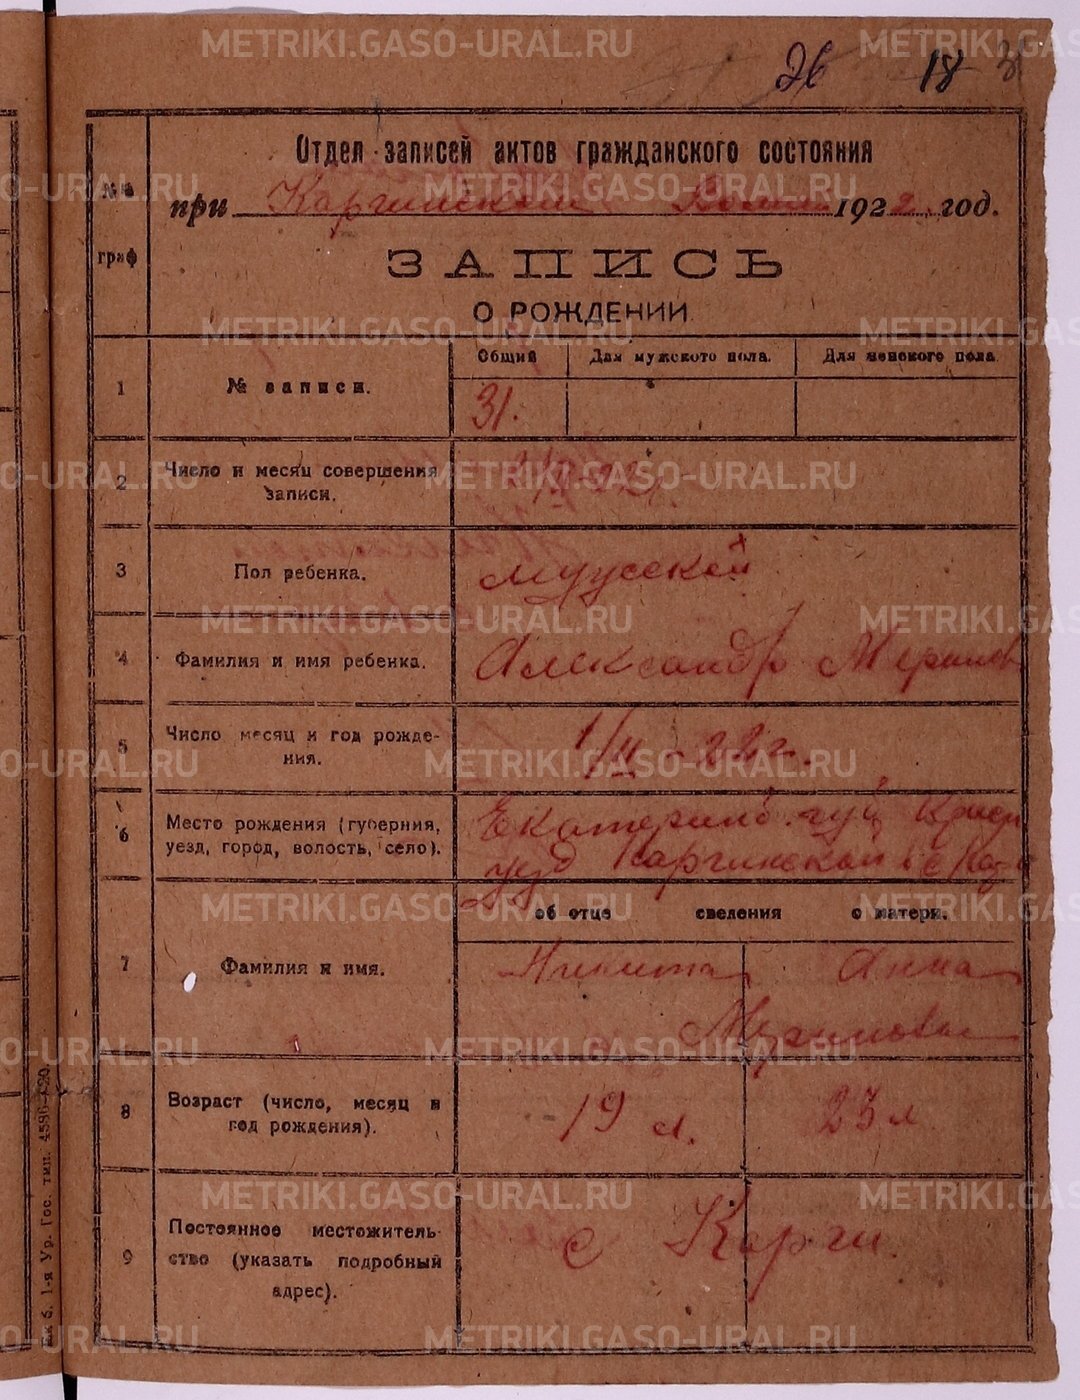 26 18
Отдел записей актов гражданского состояния
при Каргинском 1922 год.
№№ граф
ЗАПИСЬ
О РОЖДЕНИИ
Общий Для мужского пола. Для женского пола.
1 № записи. 31.
2 Число и месяц совершения
записи.
3 Пол ребенка. Мужской
4 Фамилия и имя ребенка. Александр
5 Число месяц и год рожде-
ния. 1/II - 22 г.
6 Место рождения (губерния,
уезд, город, волость, село). Екатеринб. губ
Каргинской
об отце сведения о матери.
7 Фамилия и имя. Никита Анна
8 Возраст (число, месяц и
год рождения). 19 л. 23 л
9 Постоянное местожитель-
ство (указать подробный
адрес). с Карги.
Ек б. 1-я Ур. Гос. тип. 4586-420.
METRIKI.GASO-URAL.RU